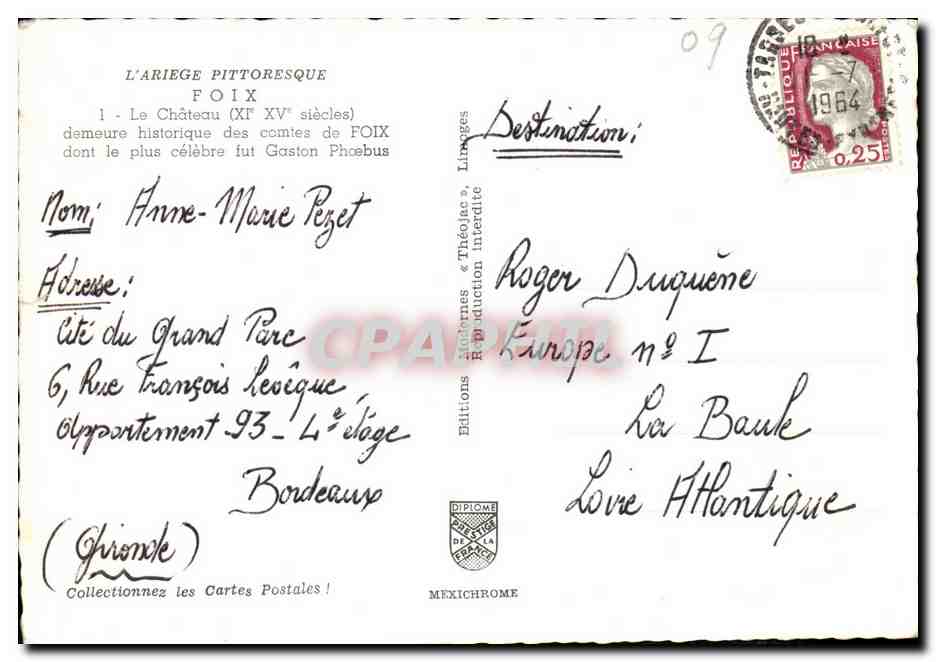 09
L'ARIEGE PITTORESQUE
FOIX
1 - Le Château (XIe XVe siècles)
demeure historique des comtes de FOIX
dont le plus célèbre fut Gaston Phœbus
Nom; Anne-Marie Pezet
Adresse:
Cité du Grand Parc
6, Rue François Levêque,
Appartement 93 - 4e étage
Bordeaux
(Gironde)
Collectionnez les Cartes Postales !
Editions Modernes « Théojac », Limoges
Reproduction interdite
CPAPHIL
DIPLOME
PRESTIGE
DE LA
FRANCE
MEXICHROME
REPUBLIQUE FRANCAISE
0,25
1964
Destination:
Roger Duquêne
Europe nº I
La Baule
Loire Atlantique